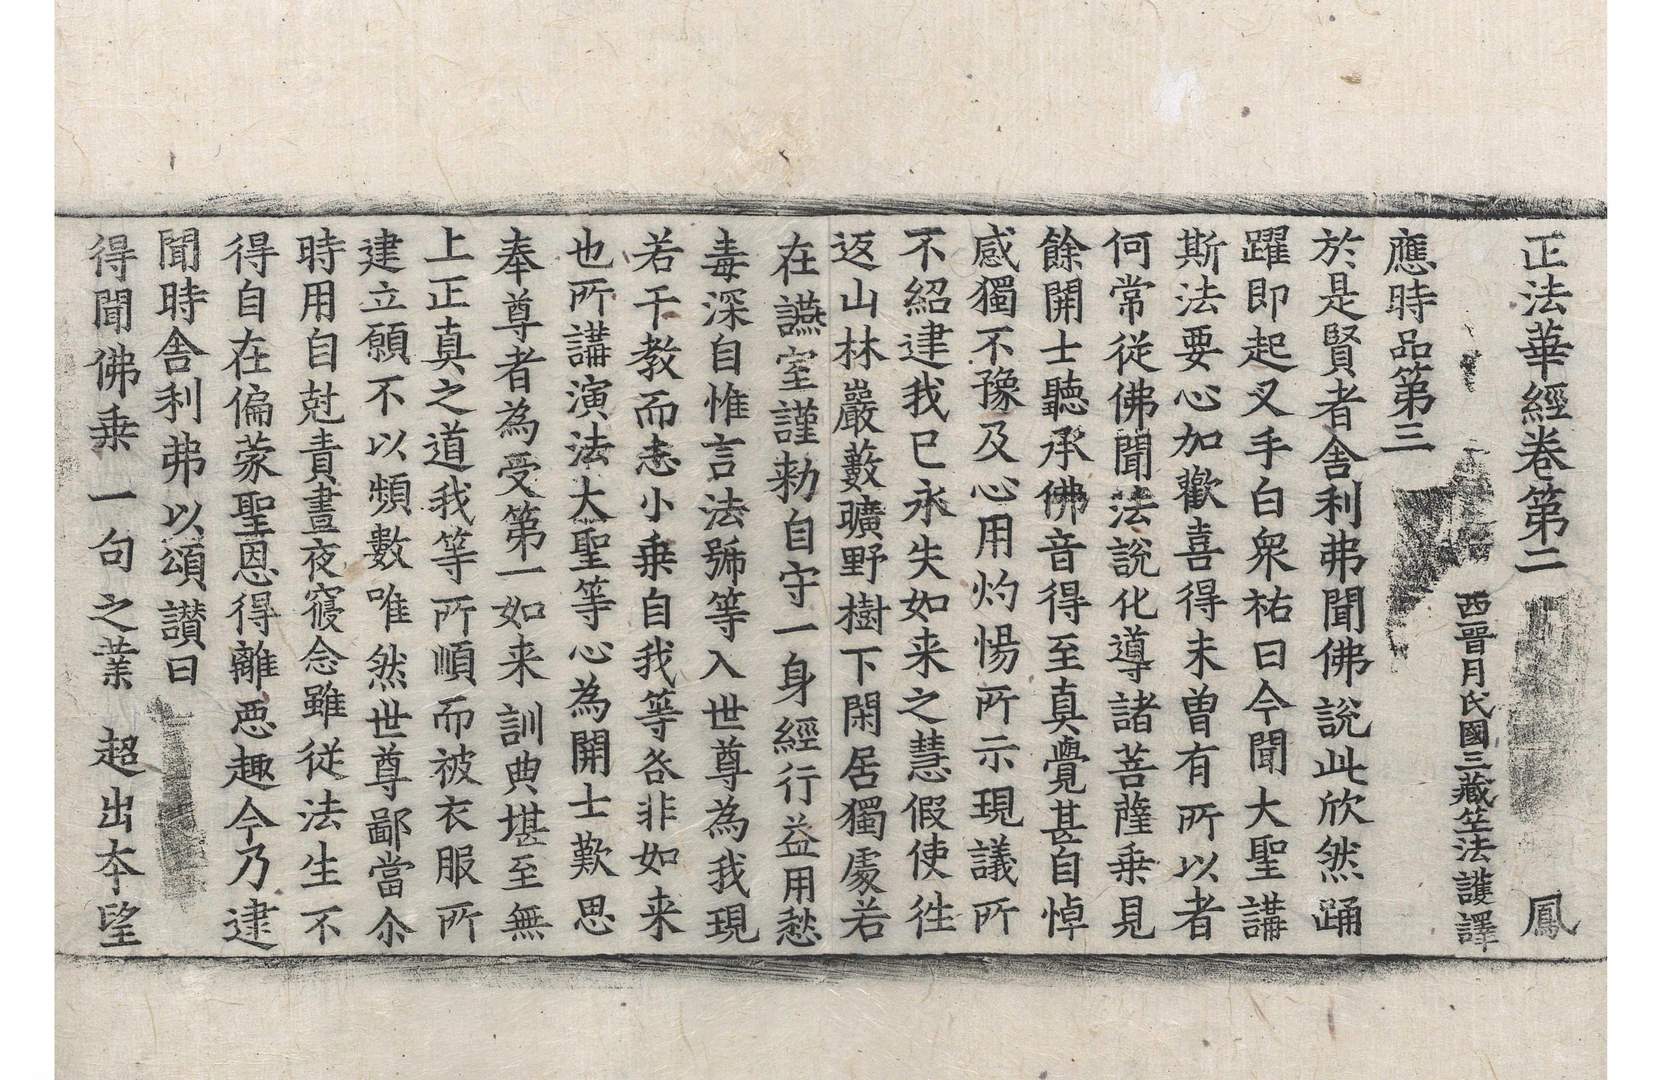 正法華經卷第二 鳳
西晉月氏國三藏竺法護譯
應時品第三
於是賢者舍利弗聞佛說此欣然踊
躍即起叉手白衆祐曰今聞大聖講
斯法要心加歡喜得未曾有所以者
何常從佛聞法說化導諸菩薩乗見
餘開士聽承佛音得至真覺甚自悼
感獨不豫及心用灼惕所示現議所
不紹逮我已永失如来之慧假使徃
返山林巖藪曠野樹下閑居獨處若
在讌室謹勑自守一身經行益用愁
毒深自惟言法號等入世尊為我現
若干教而志小乗自我等咎非如来
也所講演法大聖等心為開士歎思
奉尊者為受第一如来訓典堪至無
上正真之道我等所順而被衣服所
建立願不以頻數唯然世尊鄙當尒
時用自剋責晝夜寢念雖從法生不
得自在偏蒙聖恩得離惡趣今乃逮
聞時舍利弗以頌讃曰
得聞佛乗 一句之業 超出夲望